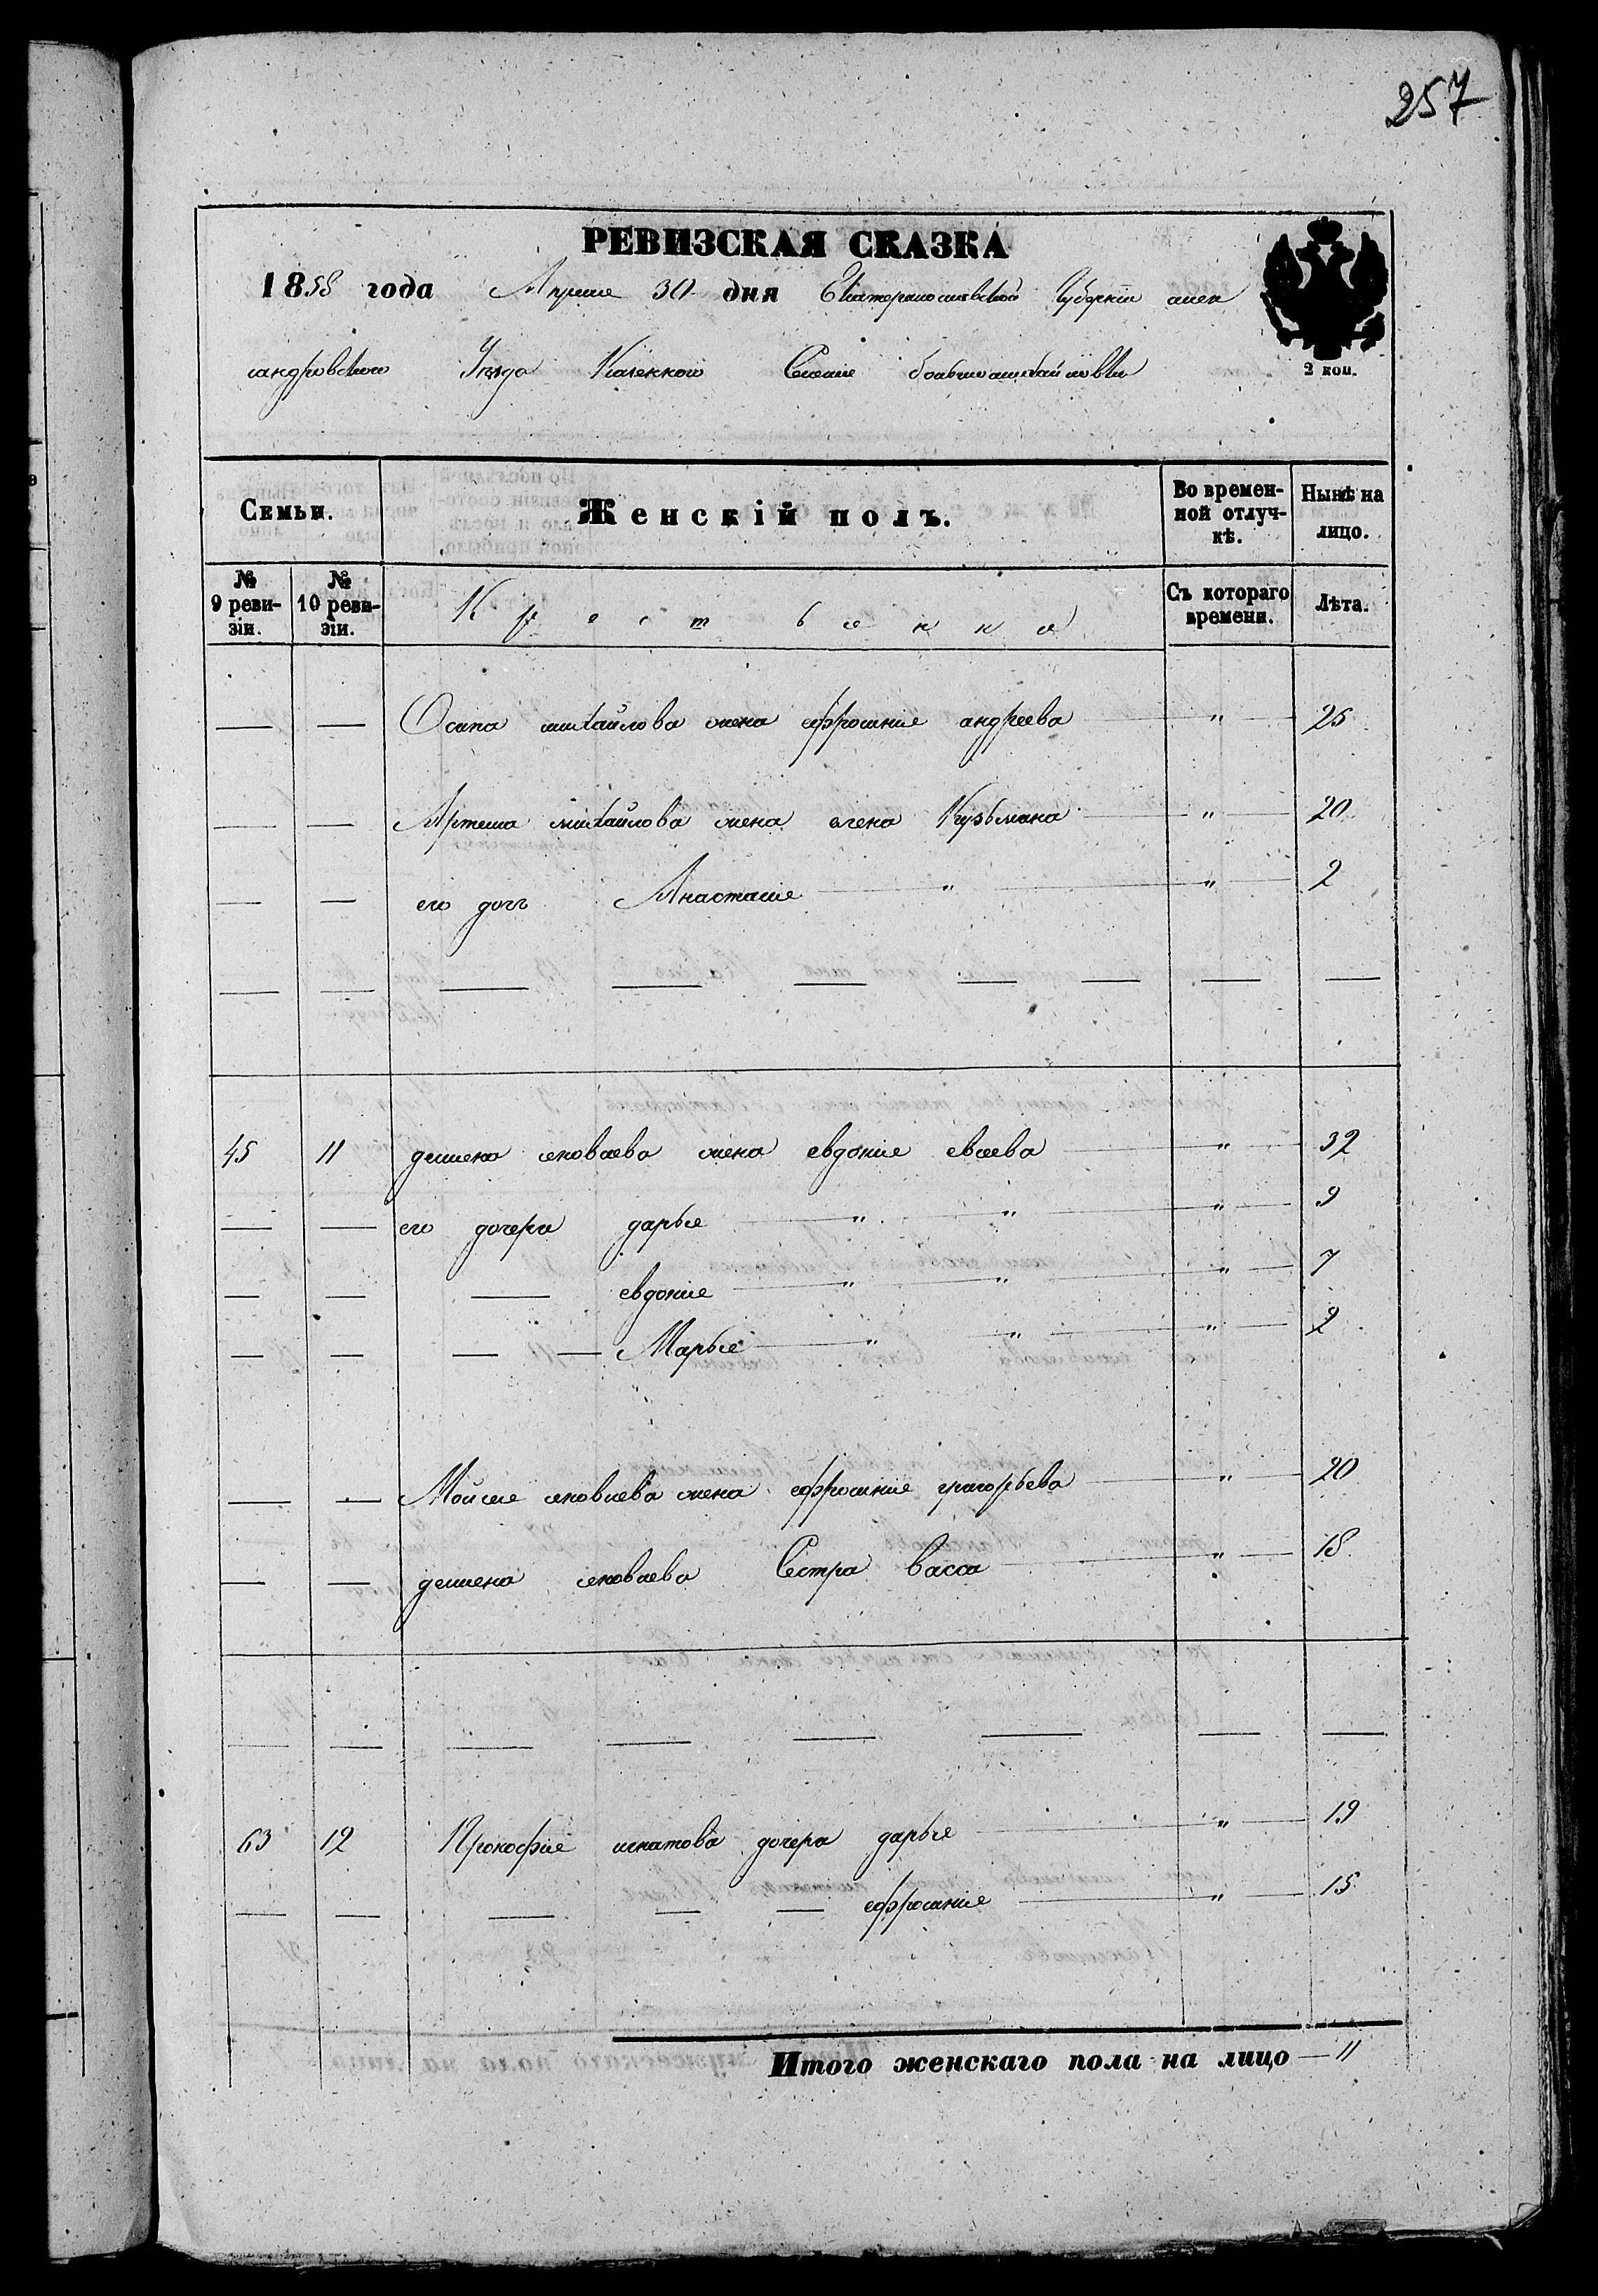 257
РЕВИЗСКАЯ СКАЗКА
1858 года Апреля 30 дня Екатеринославской Губернии алек
сандровского Уезда Казенного Селения
2 коп.
Семьи. Женскій полъ. Во времен-ной отлуч-кѣ. Нынѣ на лицо.
№ 9 реви-зіи. № 10 реви-зіи. Крестьянка Съ котораго времени. Лѣта.
— — Осипа михайлова жена ефросиния андреева " 25
— — Артема михайлова жена елена Кузьмина " 20
— — его дочь Анастасия " " 2
— — — — — — — — —
45 11 жена евдокия " 32
— — его дочери дарья " " " 9
— — — евдокия " " " 7
— — — — Марья " " " 2
— — Мойсея жена ефросиния григорьева " 20
— — Сестра васса " 18
— — — — — — — —
63 12 Прокофия игнатова дочери дарья " 19
— — — — — ефросиния " 15
Итого женскаго пола на лицо — 11